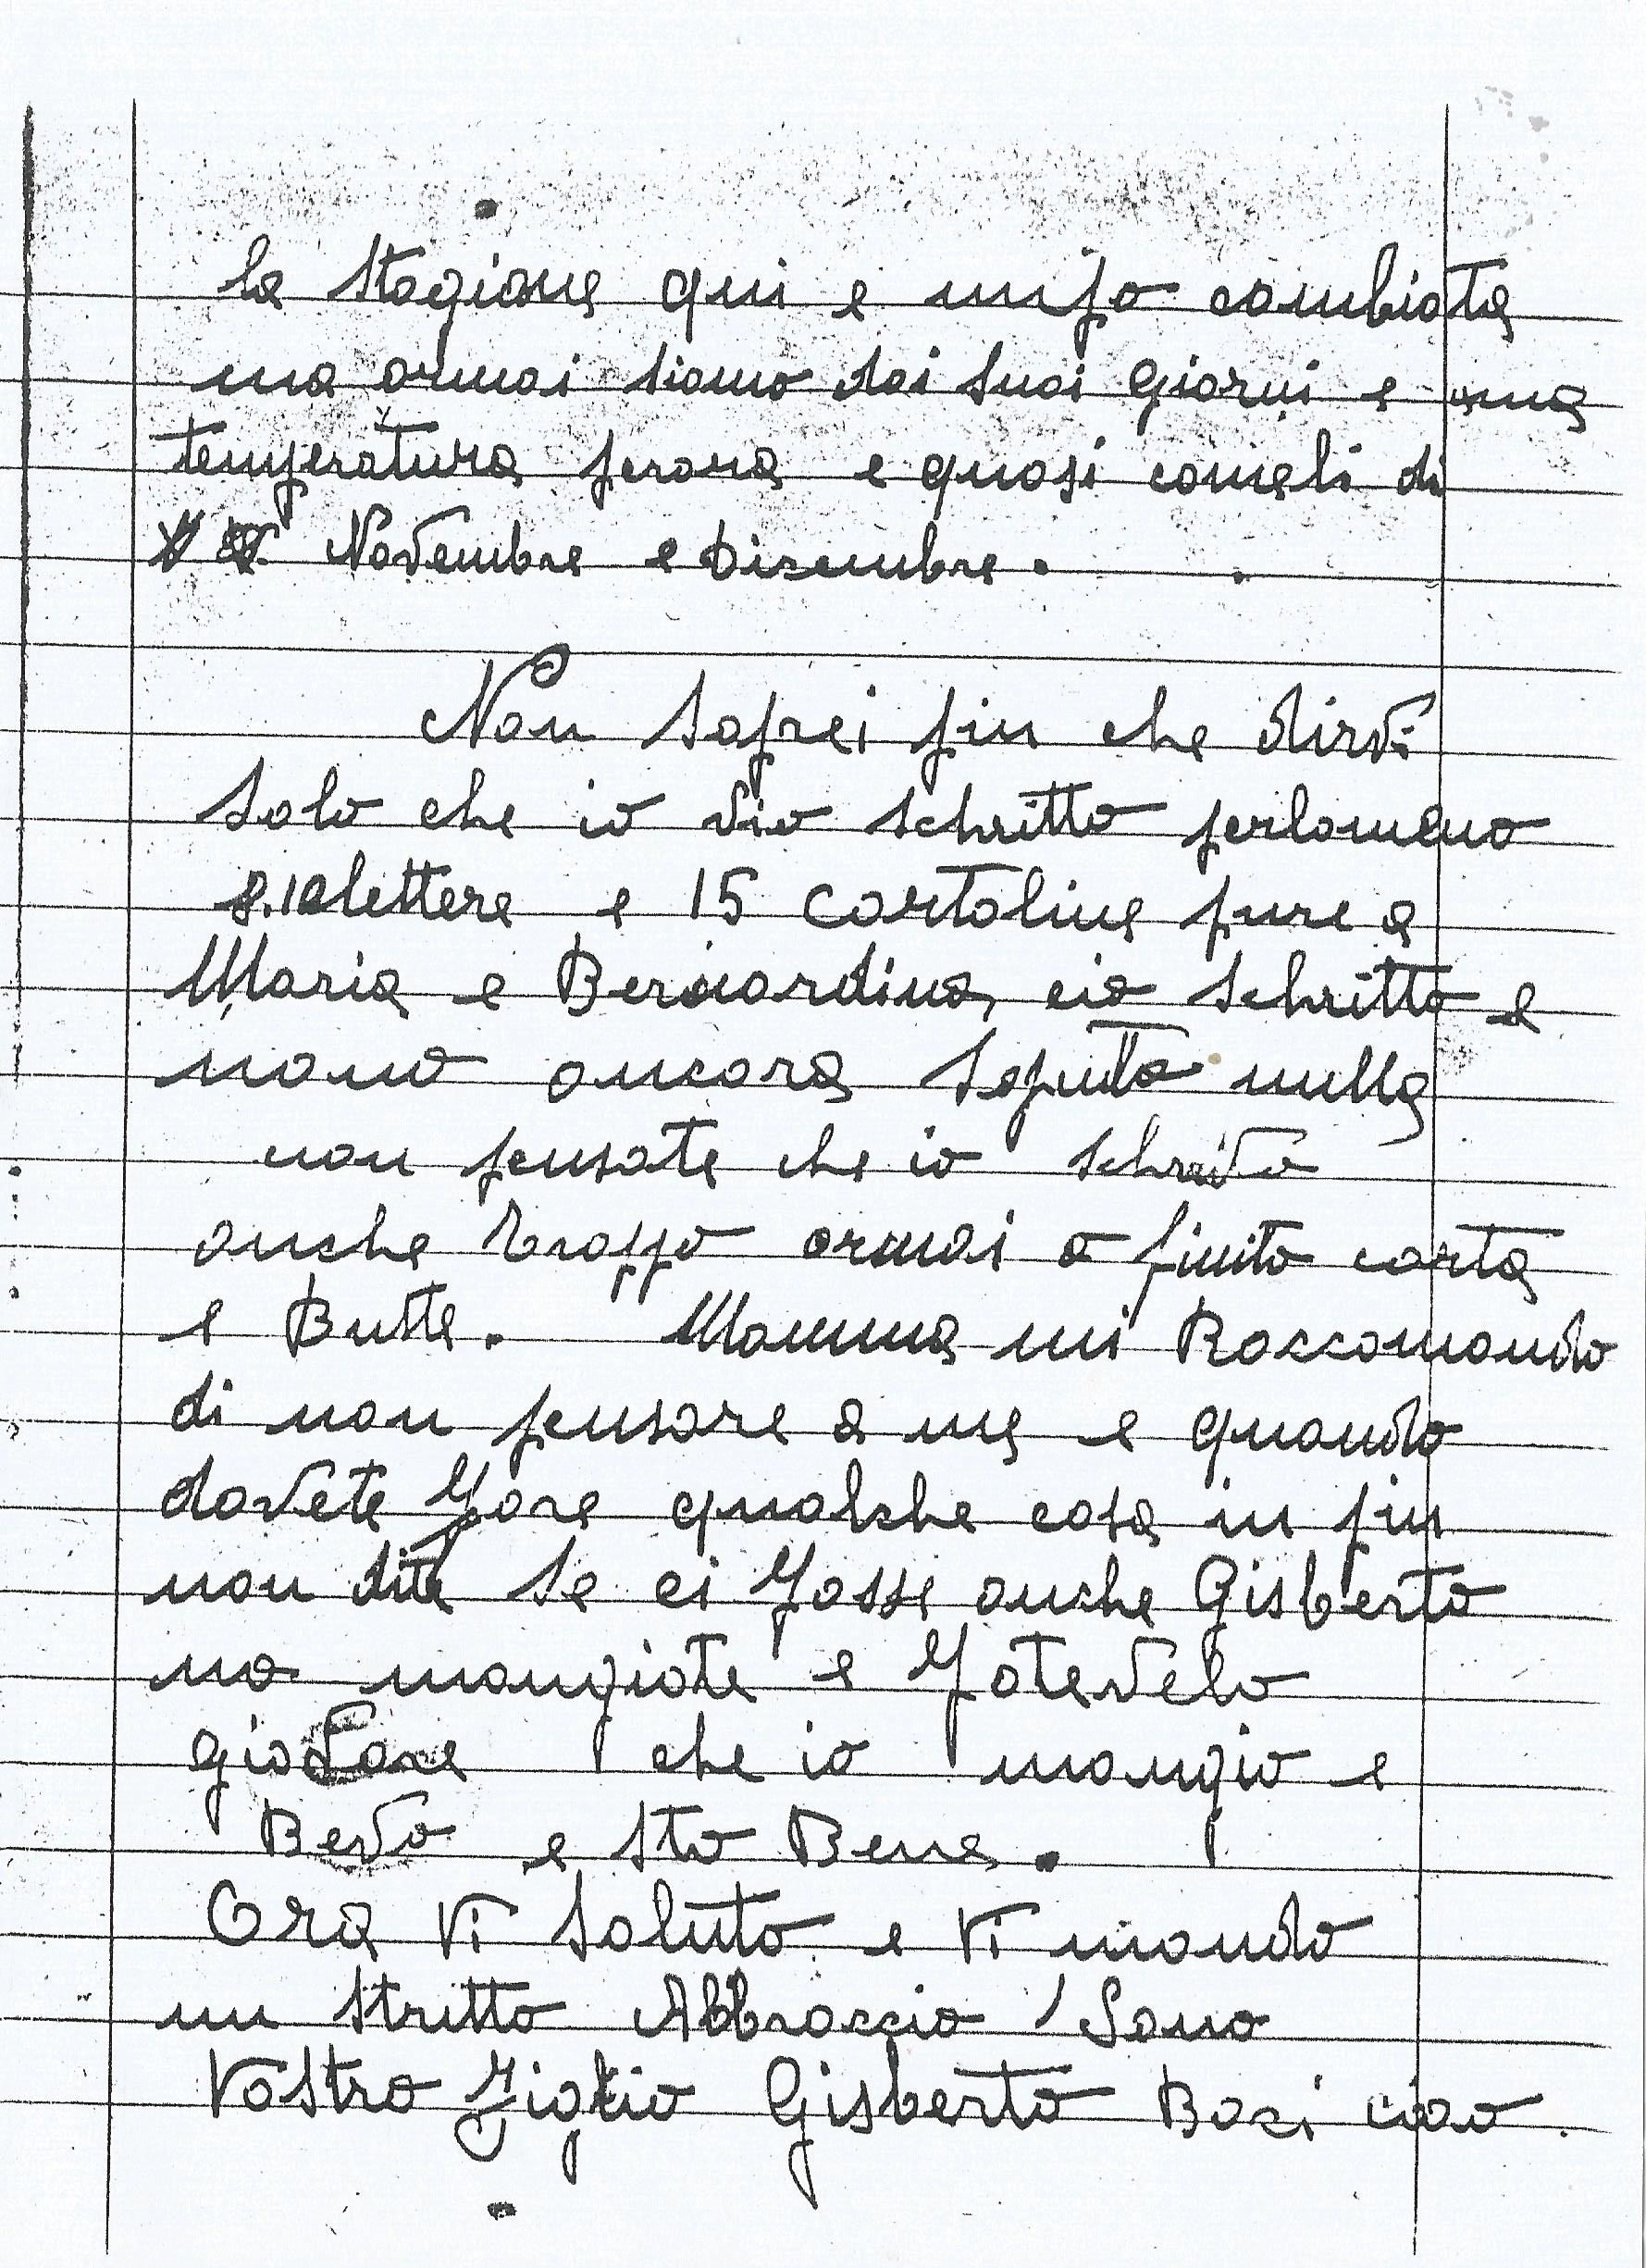 la stagione qui e unpo cambiata
ma ormai siamo dai suoi giorni e una
temperatura perora e quasi comeli di
Novembre e Dicembre.
Non saprei piu che dirvi
solo che io vio schritto perlomeno
8.10 lettere e 15 cartoline pure a
Maria e Bernardina, cio schritto e
nono ancora saputo nulla
non pensate che io schrivo
anche troppo ormai o finito carta
e Buste. Mamma mi Raccomando
di non pensare a me e quando
dovete fare qualche cosa in piu
non dite se ci fosse anche Gisberto
ma mangiate e fatevelo
giovare che io mangio e
Bevo e sto Bene.
Ora Vi saluto e Vi mando
un stretto Abbraccio / Sono
Vostro figlio Gisberto Baci ciao.